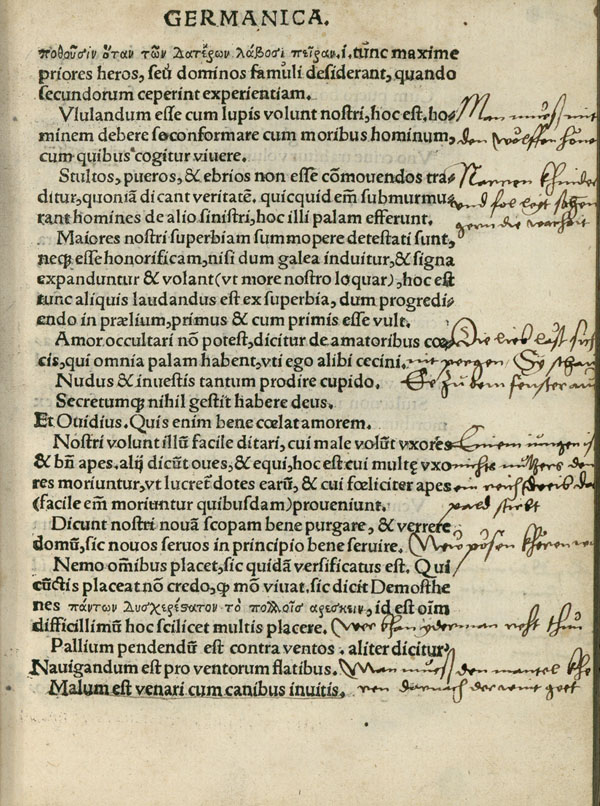 GERMANICA.
ποθοῦσιν ὅταν τῶν Δατέρων λάβοσι πεῖραν. i. tũnc maxime
priores heros, seũ dominos famuli desiderant, quando
secundorum ceperint experientiam.
Vlulandum esse cum lupis volunt nostri, hoc est. ho-
minem debere se conformare cum moribus hominum,
cum quibus cogitur viuere.
Man mueß mit
den wolffen
Stultos, pueros, & ebrios non esse cõmouendos tra-
ditur, quoniã dicant veritatẽ. quicquid em̃ submurmu-
rant homines de alio sinistri, hoc illi palam efferunt.
Narren khinder
und fol
gern die warheit
Maiores nostri superbiam summopere detestati sunt,
necq; esse honorificam, nisi dum galea induitur, & signa
expanduntur & volant (vt more nostro loquar), hoc est
tunc aliquis laudandus est ex superbia, dum progredi-
endo in prælium, primus & cum primis esse vult.
Amor occultari nõ potest, dicitur de amatoribus cœ-
cis, qui omnia palam habent, vti ego alibi cecini.
Nudus & inuestis tantum prodire cupido.
Secretumq; nihil gestit habere deus.
Die lieb last sich
nit
zu dem fenster auß
Et Ouidius. Quis enim bene cœlat amorem.
Nostri volunt illũ facile ditari, cui male volũt vxores
& bñ apes. alij dicũt oues, & equi, hoc est cui multę vxo
res moriuntur, vt lucret dotes earũ, & cui fœliciter apes
(facile em̃ moriuntur quibusdam) proueniunt.
Einem iungen ist
nichts nutzers den
ein reich weib
pard stirbt
Dicunt nostri nouã scopam bene purgare, & verrere
domũ, sic nouos seruos in principio bene seruire.
New pösen kheren
Nemo om̃ibus placet, sic quidã versificatus est. Qui
cũctis placeat nõ credo, q; mõ viuat. sic dicit Demosthe
nes πάντων Δυσχερέσατον τὸ πολλοῖς αρεσκειν, id est oĩm
difficillimũ hoc scilicet multis placere.
Wer khan yderman recht thun
Pallium pendendũ est contra ventos. aliter dicitur
Nauigandum est pro ventorum flatibus.
Man mueß den mantel
Malum est venari cum canibus inuitis.
darnach der wint geet